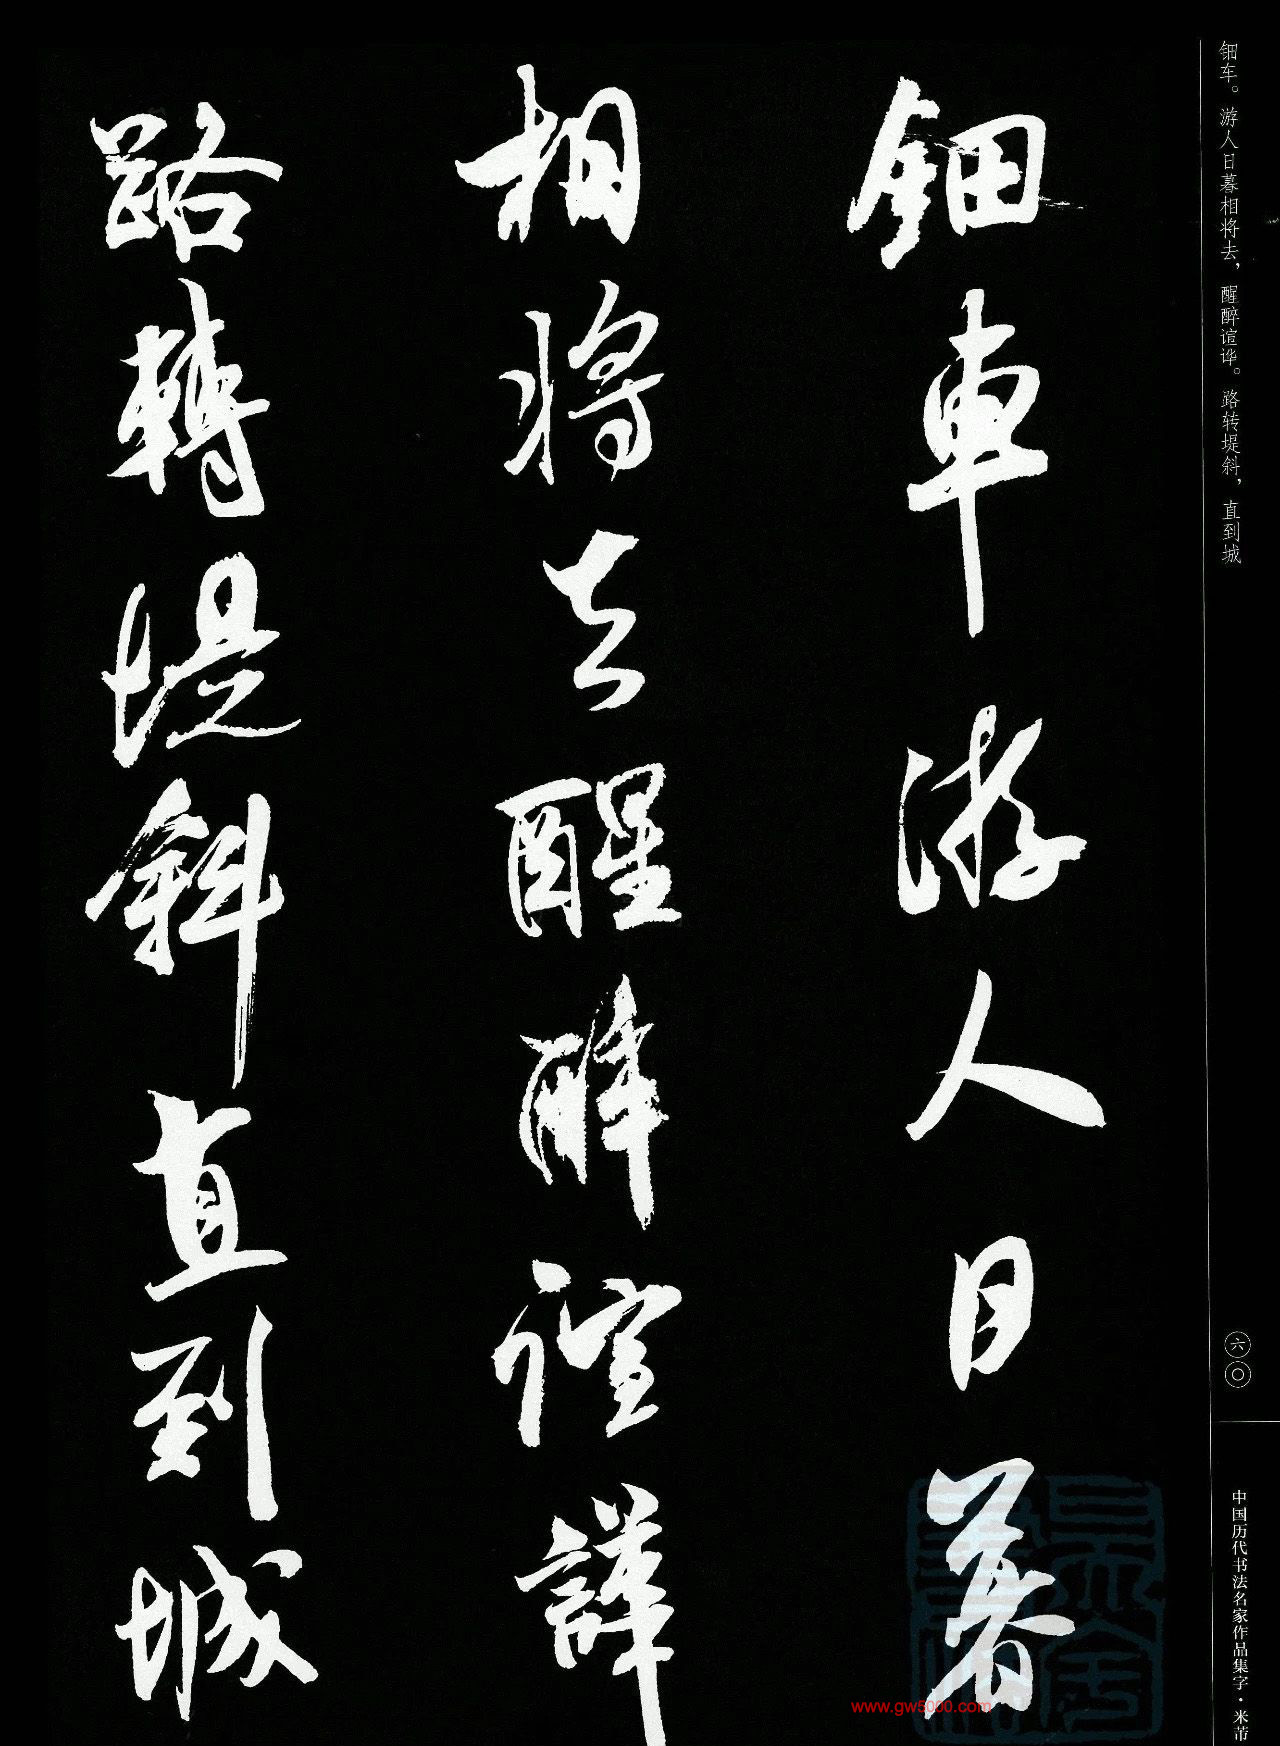 钿车。游人日暮相将去，醒醉谊哗。路转堤斜，直到城
鈿車游人日暮
相將去醒醉諠譁
路轉堤斜直到城
六〇
中国历代书法名家作品集字·米芾
www.gw5000.com